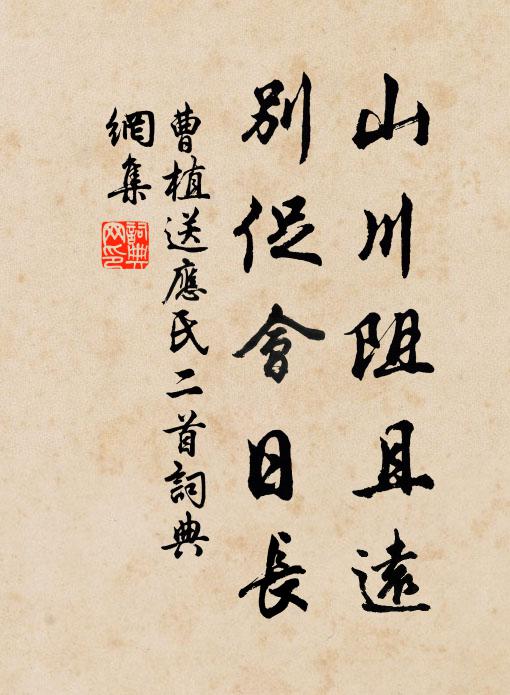 山川阻且遠
別促會日長
曹植送應氏二首詞典
網集
詞典
网印